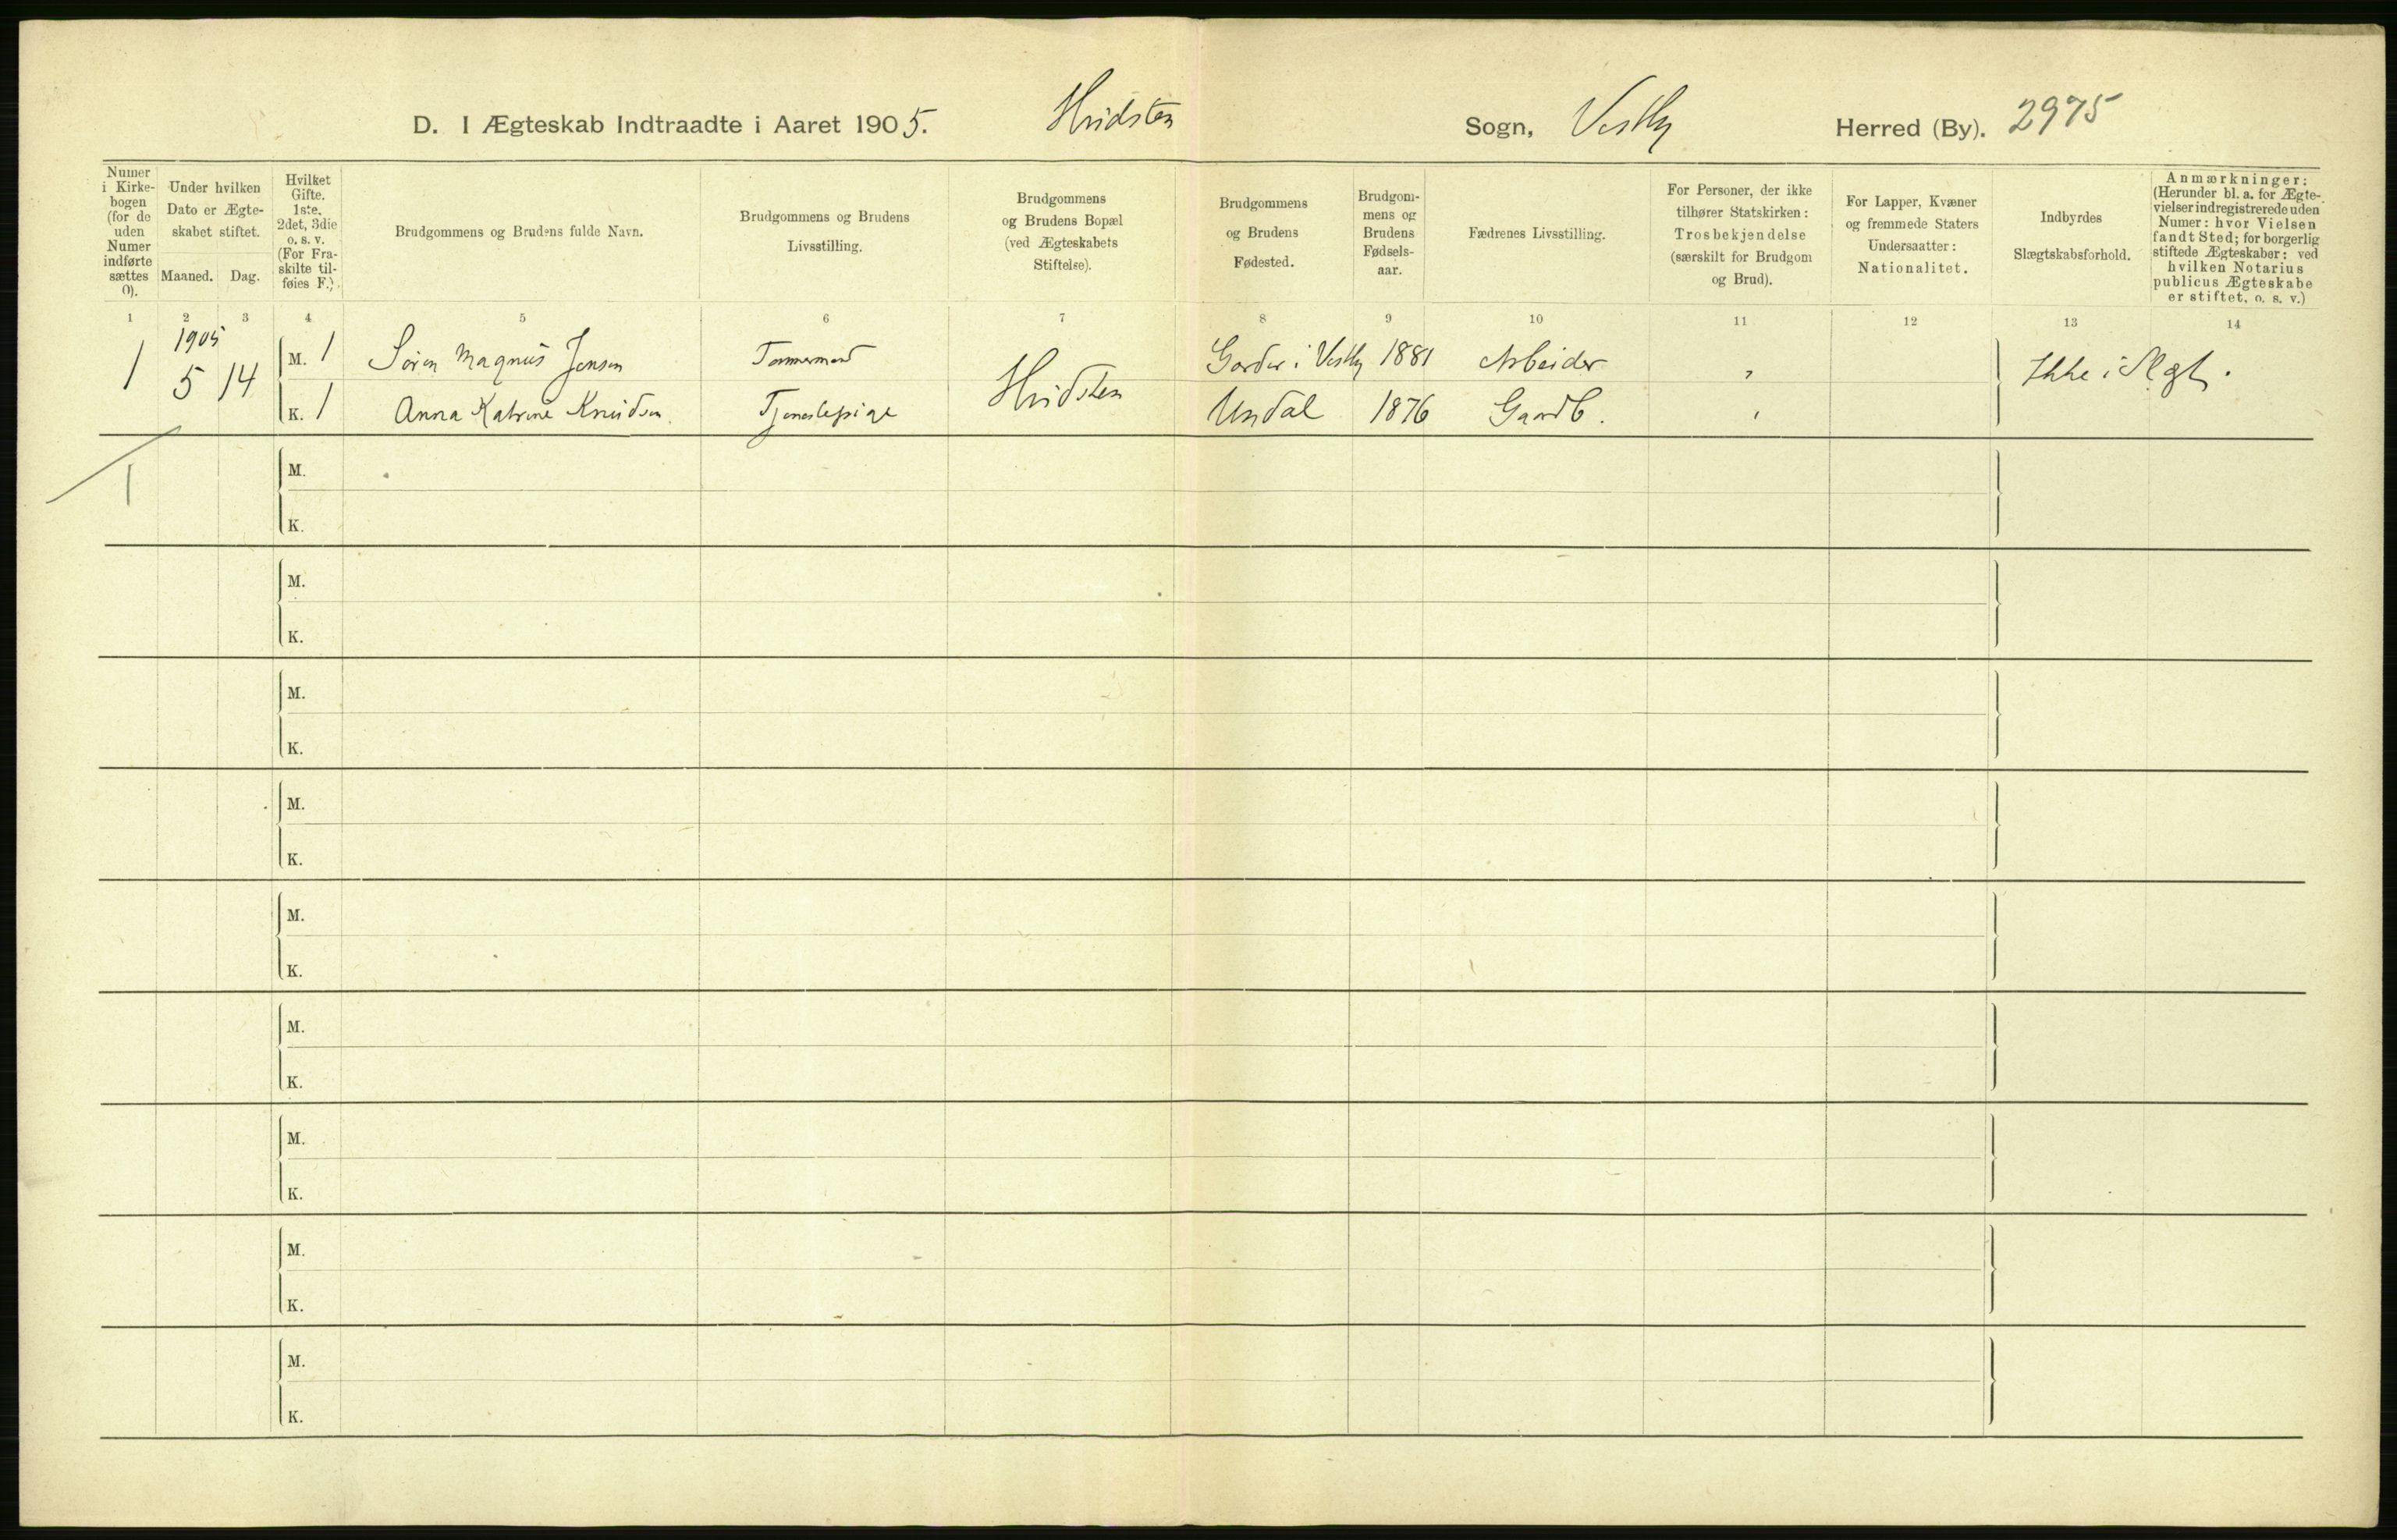 D. I Ægteskab Indtraadte i Aaret 1905. Hvidsten Sogn, Vestby Herred (By). 2975
Numer i Kirkebogen (for de uden Numer indførte sættes 0).
Under hvilken Dato er Ægteskabet stiftet.
Maaned. Dag.
Hvilket Gifte. 1ste, 2det, 3die o. s. v. (For Fraskilte tilføies F.)
Brudgommens og Brudens fulde Navn.
Brudgommens og Brudens Livsstilling.
Brudgommens og Brudens Bopæl (ved Ægteskabets Stiftelse).
Brudgommens og Brudens Fødested.
Brudgommens og Brudens Fødselsaar.
Fædrenes Livsstilling.
For Personer, der ikke tilhører Statskirken: Trosbekjendelse (særskilt for Brudgom og Brud).
For Lapper, Kvæner og fremmede Staters Undersaatter: Nationalitet.
Indbyrdes Slægtskabsforhold.
Anmærkninger: (Herunder bl. a. for Ægtevielser indregistrerede uden Numer: hvor Vielsen fandt Sted; for borgerlig stiftede Ægteskaber: ved hvilken Notarius publicus Ægteskabe er stiftet, o. s. v.)
1 2 3 4 5 6 7 8 9 10 11 12 13 14
1905
1 5 14 M. 1 Søren Magnus Jensen Tømmermand Hvidsten Garder i Vestby 1881 Arbeider " Ikke i Slgt.
K. 1 Anna Katrine Knudsen Tjenestepige Undal 1876 Gaardb. "
1
M.
K.
M.
K.
M.
K.
M.
K.
M.
K.
M.
K.
M.
K.
M.
K.
M.
K.